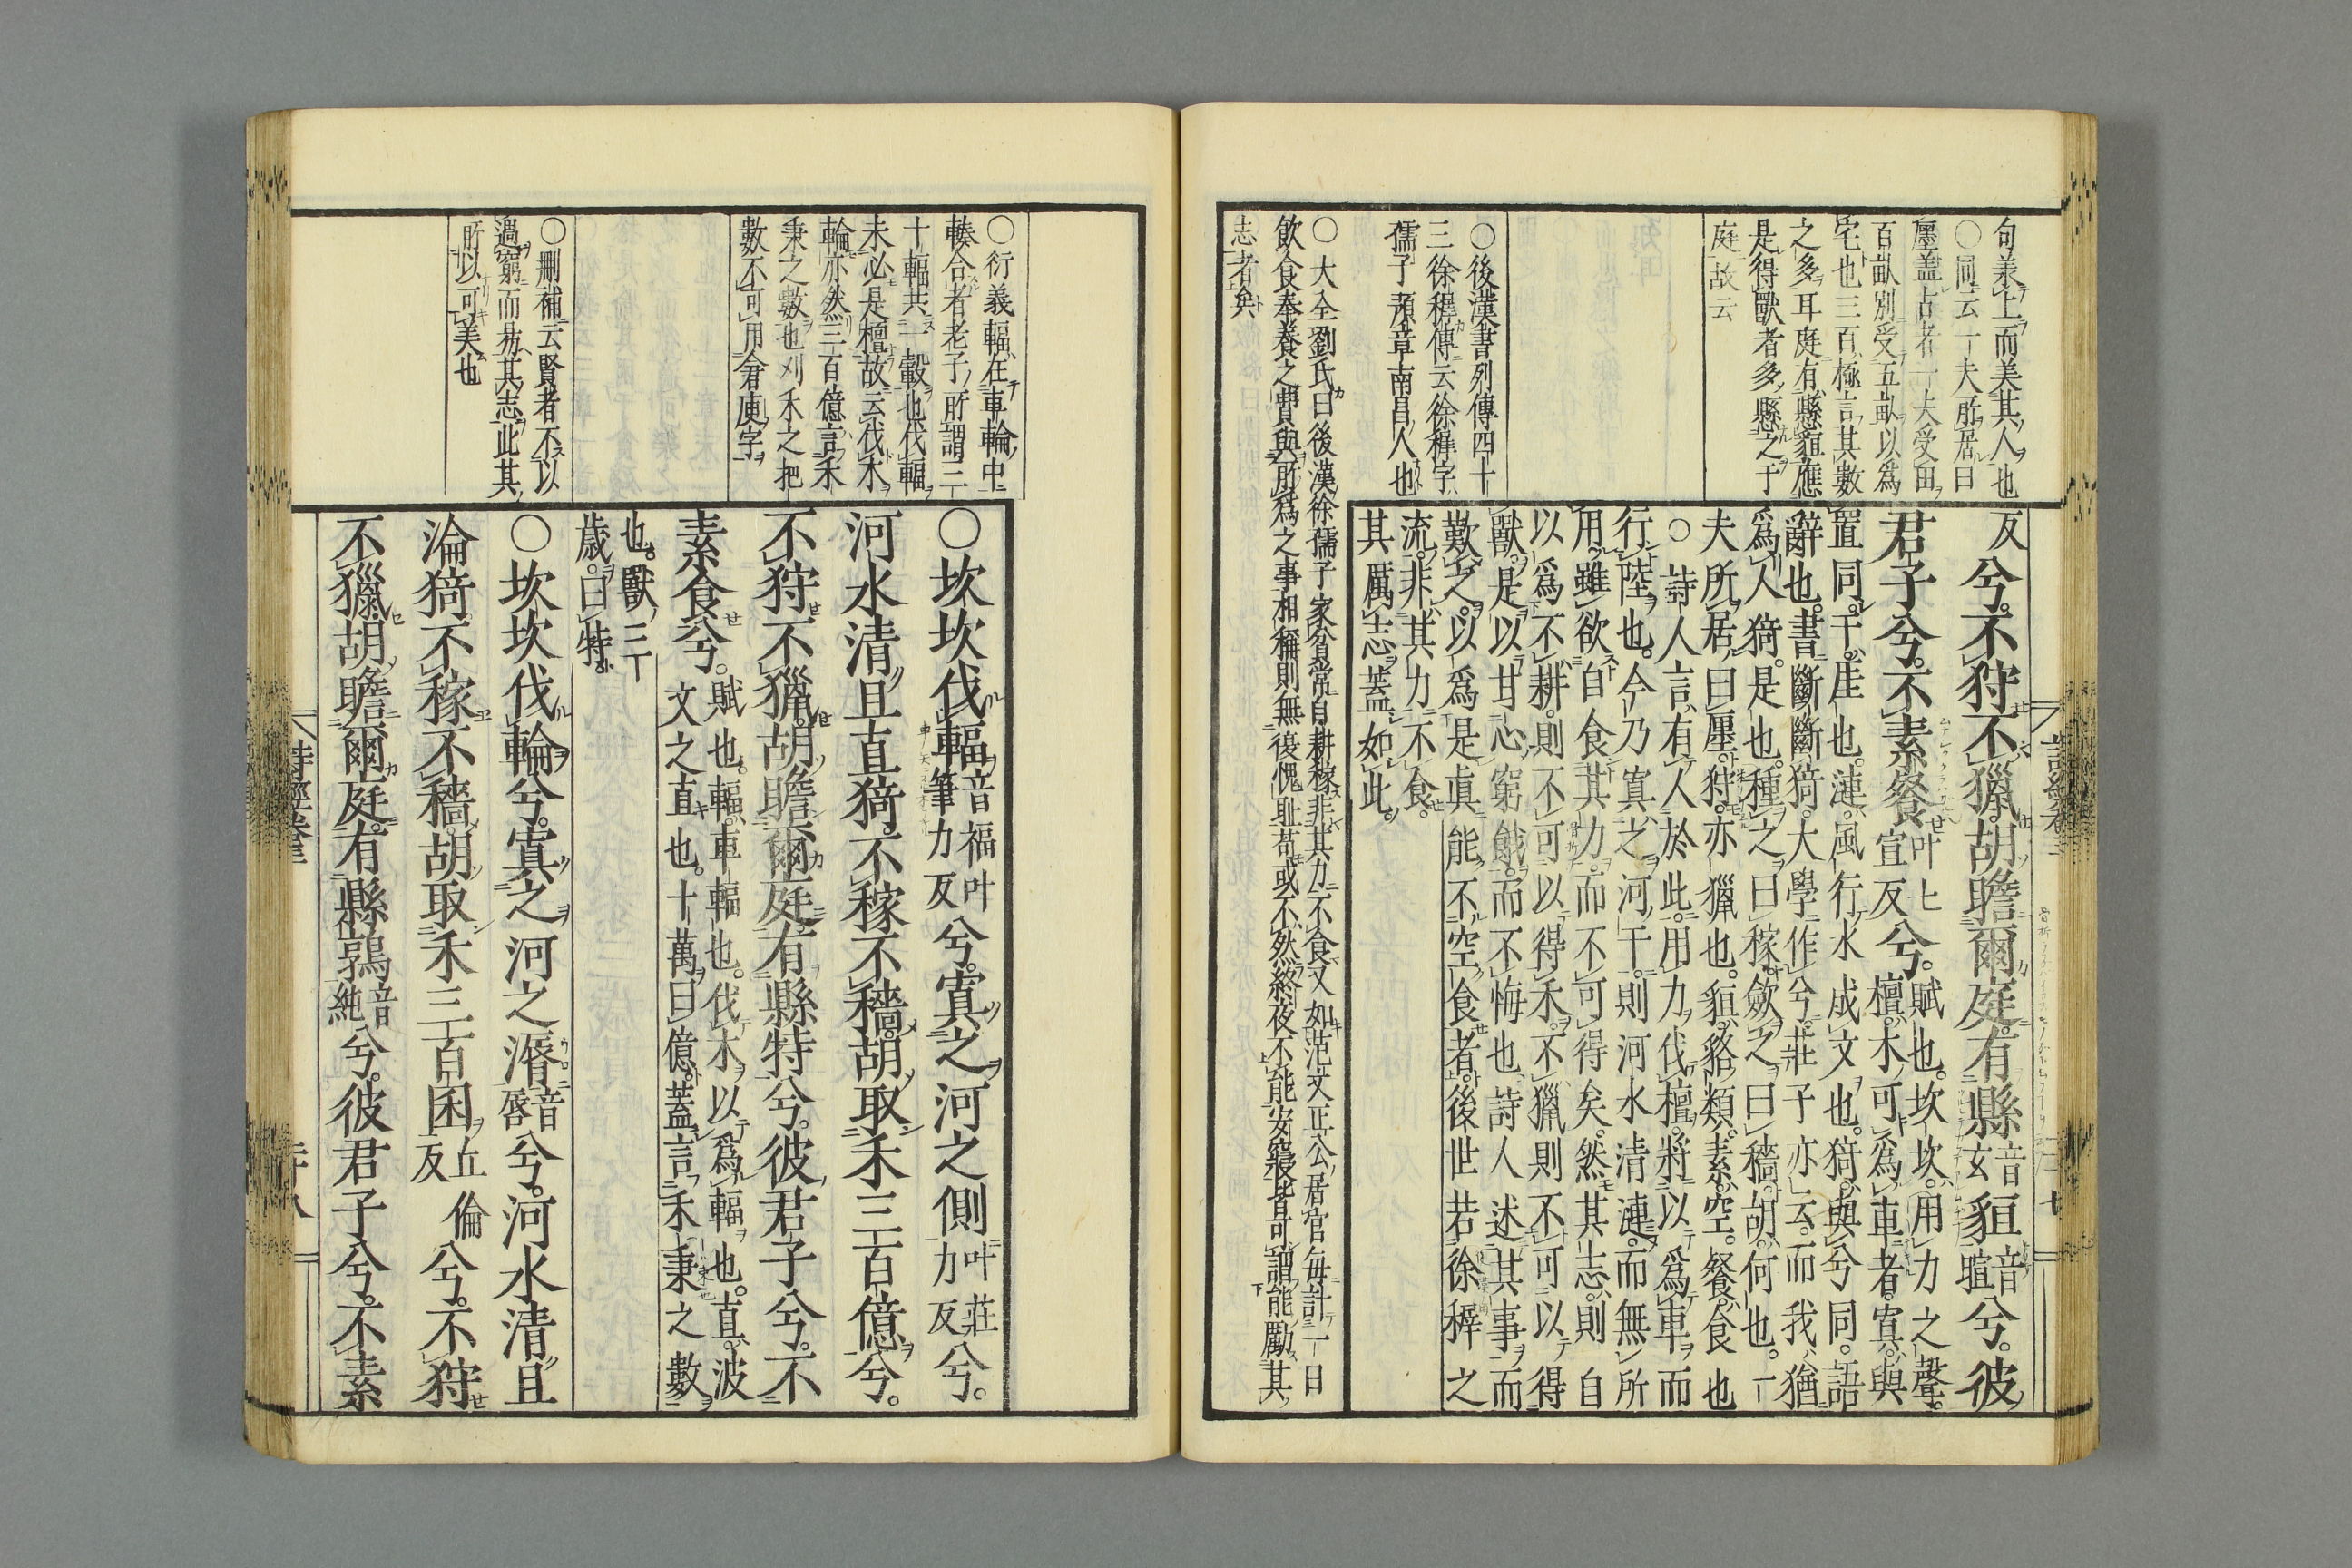 句義上而美其人也
○同云一夫所居曰
廛盖古者一夫受田
百畝別受五畝以爲
宅也三百極言其數
之多耳庭有縣貆應
是得獸者多縣之于
庭故云
○後漢書列傳四十
三徐穉傳云徐穉字
孺子豫章南昌人也
○大全劉氏曰後漢徐孺子家貧常自耕稼非其力不食又如范文正公居官每計一日
飲食奉養之費與所爲之事相稱則無復愧耻苟或不然終夜不能安寢皆可謂能勵其
志者矣
反兮不狩不獵胡瞻爾庭有縣音玄貆音暄兮彼
君子兮不素餐叶七宣反兮賦也坎坎用力之聲
檀木可爲車者寘與
置同干厓也漣風行水成文也猗與兮同語
辭也書斷斷猗大學作兮莊子亦云而我猶
爲人猗是也種之曰稼歛之曰穡胡何也一
夫所居曰廛狩亦獵也貆貉類素空餐食也
○詩人言有人於此用力伐檀將以爲車而
行陸也今乃寘之河干則河水清漣而無所
用雖欲自食其力而不可得矣然其志則自
以爲不耕則不可以得禾不獵則不可以得
獸是以甘心窮餓而不悔也詩人述其事而
歎之以爲是眞能不空食者後世若徐穉之
流非其力不食
其厲志蓋如此
詩經卷三
○衍義輻在車輪中
輳合者老子所謂三
十輻共一轂也伐輻
未必是檀故云伐木
輪亦然三百億言禾
秉之數也刈禾之把
數不可用倉庾字
○刪補云賢者不以
過窮而易其志此其
所以可美也
○坎坎伐輻音福叶筆力反兮寘之河之側叶莊力反兮
河水清且直猗不稼不穡胡取禾三百億兮
不狩不獵胡瞻爾庭有縣特兮彼君子兮不
素食兮賦也輻車輻也伐木以爲輻也直波
文之直也十萬曰億蓋言禾秉之數
也獸三
歲曰特
○坎坎伐輪兮寘之河之漘音唇兮河水清且
淪猗不稼不穡胡取禾三百囷丘倫反兮不狩
不獵胡瞻爾庭有縣鶉音純兮彼君子兮不素
詩經卷三